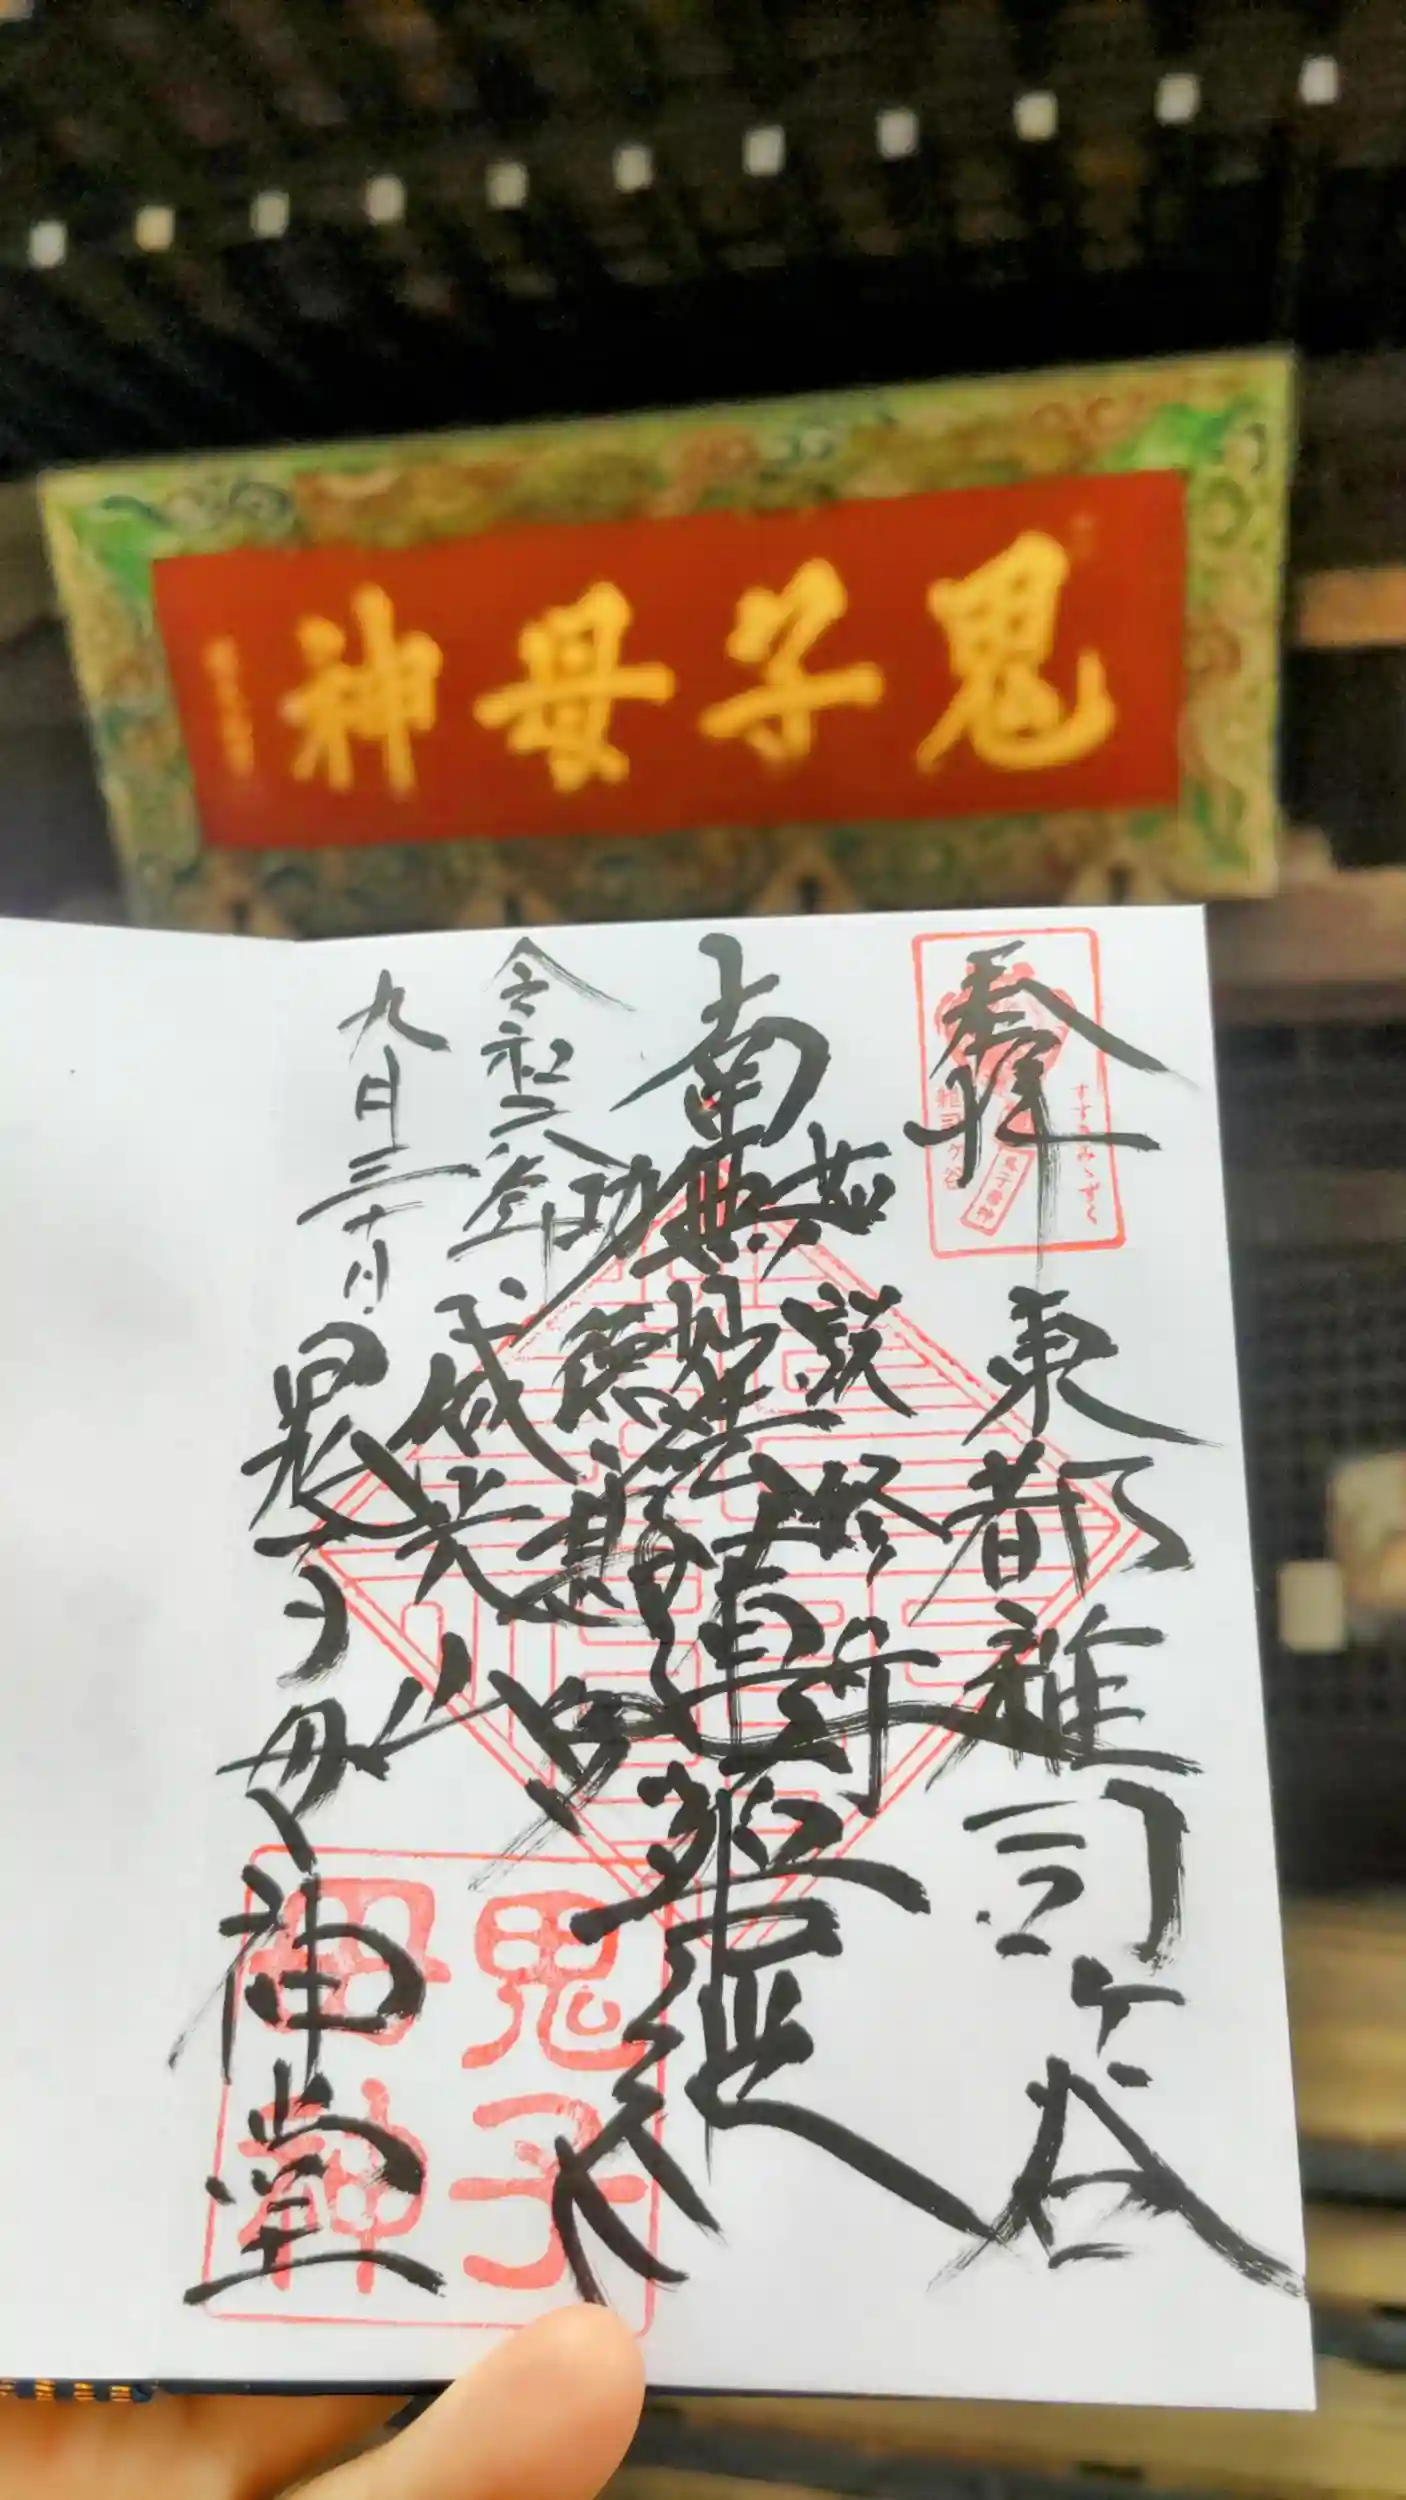 鬼子母神
奉拝
東都雑司ケ谷
如説修行
南無妙法蓮華経
功徳甚多
令和二年
九月三十日
威光山
鬼子母神堂
すすきみゝずく
鬼子母神
雑司ケ谷
鬼子母神